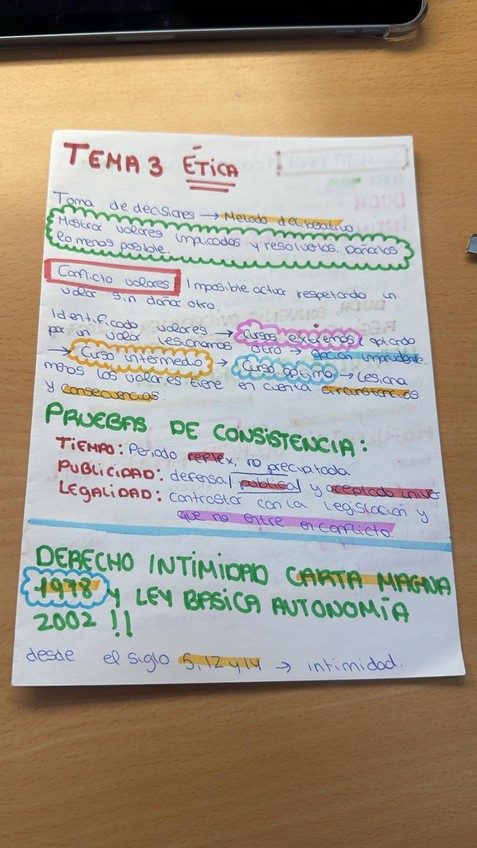 TEMA 3 ÉTICA
Toma de decisiones → Metodo deliberativo
Mostrar valores implicados y resolverlos. Dañarlos
lo menos posible.
Conflicto valores: Imposible actuar respetando un
valor sin dañar otro.
Identificado valores → Cursos extremos: optando
por un valor lesionamos otro → opción imprudente.
→ Curso intermedio → Curso óptimo → Lesiona
menos los valores tiene en cuenta circunstancias
y consecuencias.
PRUEBAS DE CONSISTENCIA:
TIEMPO: Periodo reflex, no precipitada
PUBLICIDAD: defensa publica y aceptado univer
LEGALIDAD: contrastar con la legislacion y
que no entre en conflicto.
DERECHO INTIMIDAD CARTA MAGNA
1978 y LEY BASICA AUTONOMÍA
2002 !!
desde el siglo 5, 12 y 14 → intimidad.